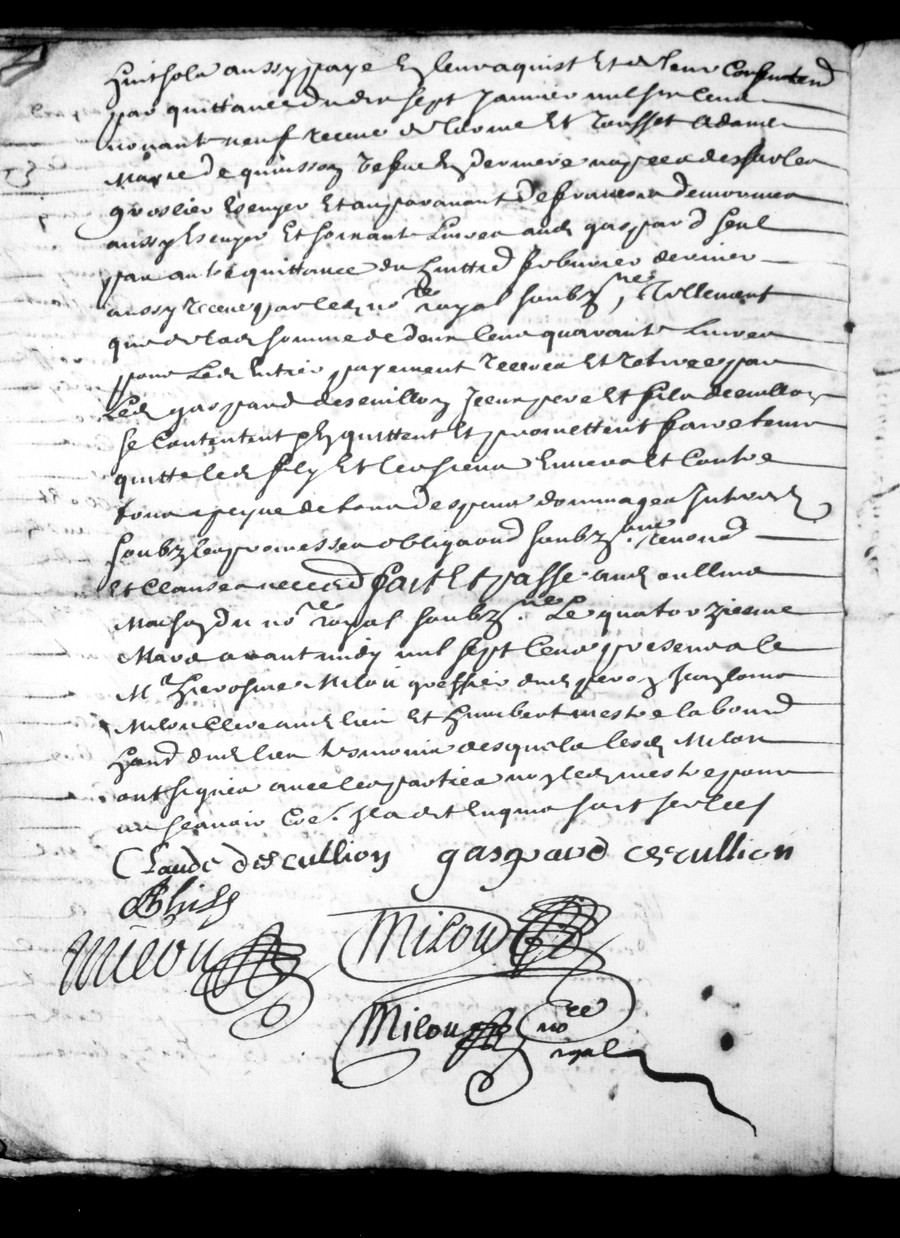 huit sols aussy paye en leur aquist et de leur consentend
par quittance du dix sept janvier mil six cens
nonante neuf receue de et a dame
Marie de quinson vefve en derniere nopces de
groslier escuyer et auparavant de francois demornieu
aussy escuyer et soixante livres aud gaspard seul
par autre quittance du huittie febvrier dernier
aussy receue par led no.re royal soubz.né, tellement
que de lad somme de deux cens quarante livres
pour led entier payement receue et retiree par
led gaspard descullion jceux pere et fils descullion
se contentent en quittent et promettent faire tenir
quitte led fely et les siens envers et contre
tous a peyne de tous despens dommages jnterest
soubz les promesses obligaond soubz.ons, renond
et clauses necced fait et passe aud oullins
maison du no.re royal soubz.né Le quatorzieme
Mars avant midy mil sept cens presens le
M.r hierosme Milon greffier dud
Milon clerc aud lieu et humbert mestre labourd
dud lieu tesmoins desquels lesd Milon
ont signes avec les parties non led mestre pour
ne scavoir c.e jl a dit enquis soit scelles
Claude descullion gaspard descullion

Milon Milon
Milon no.re
royal